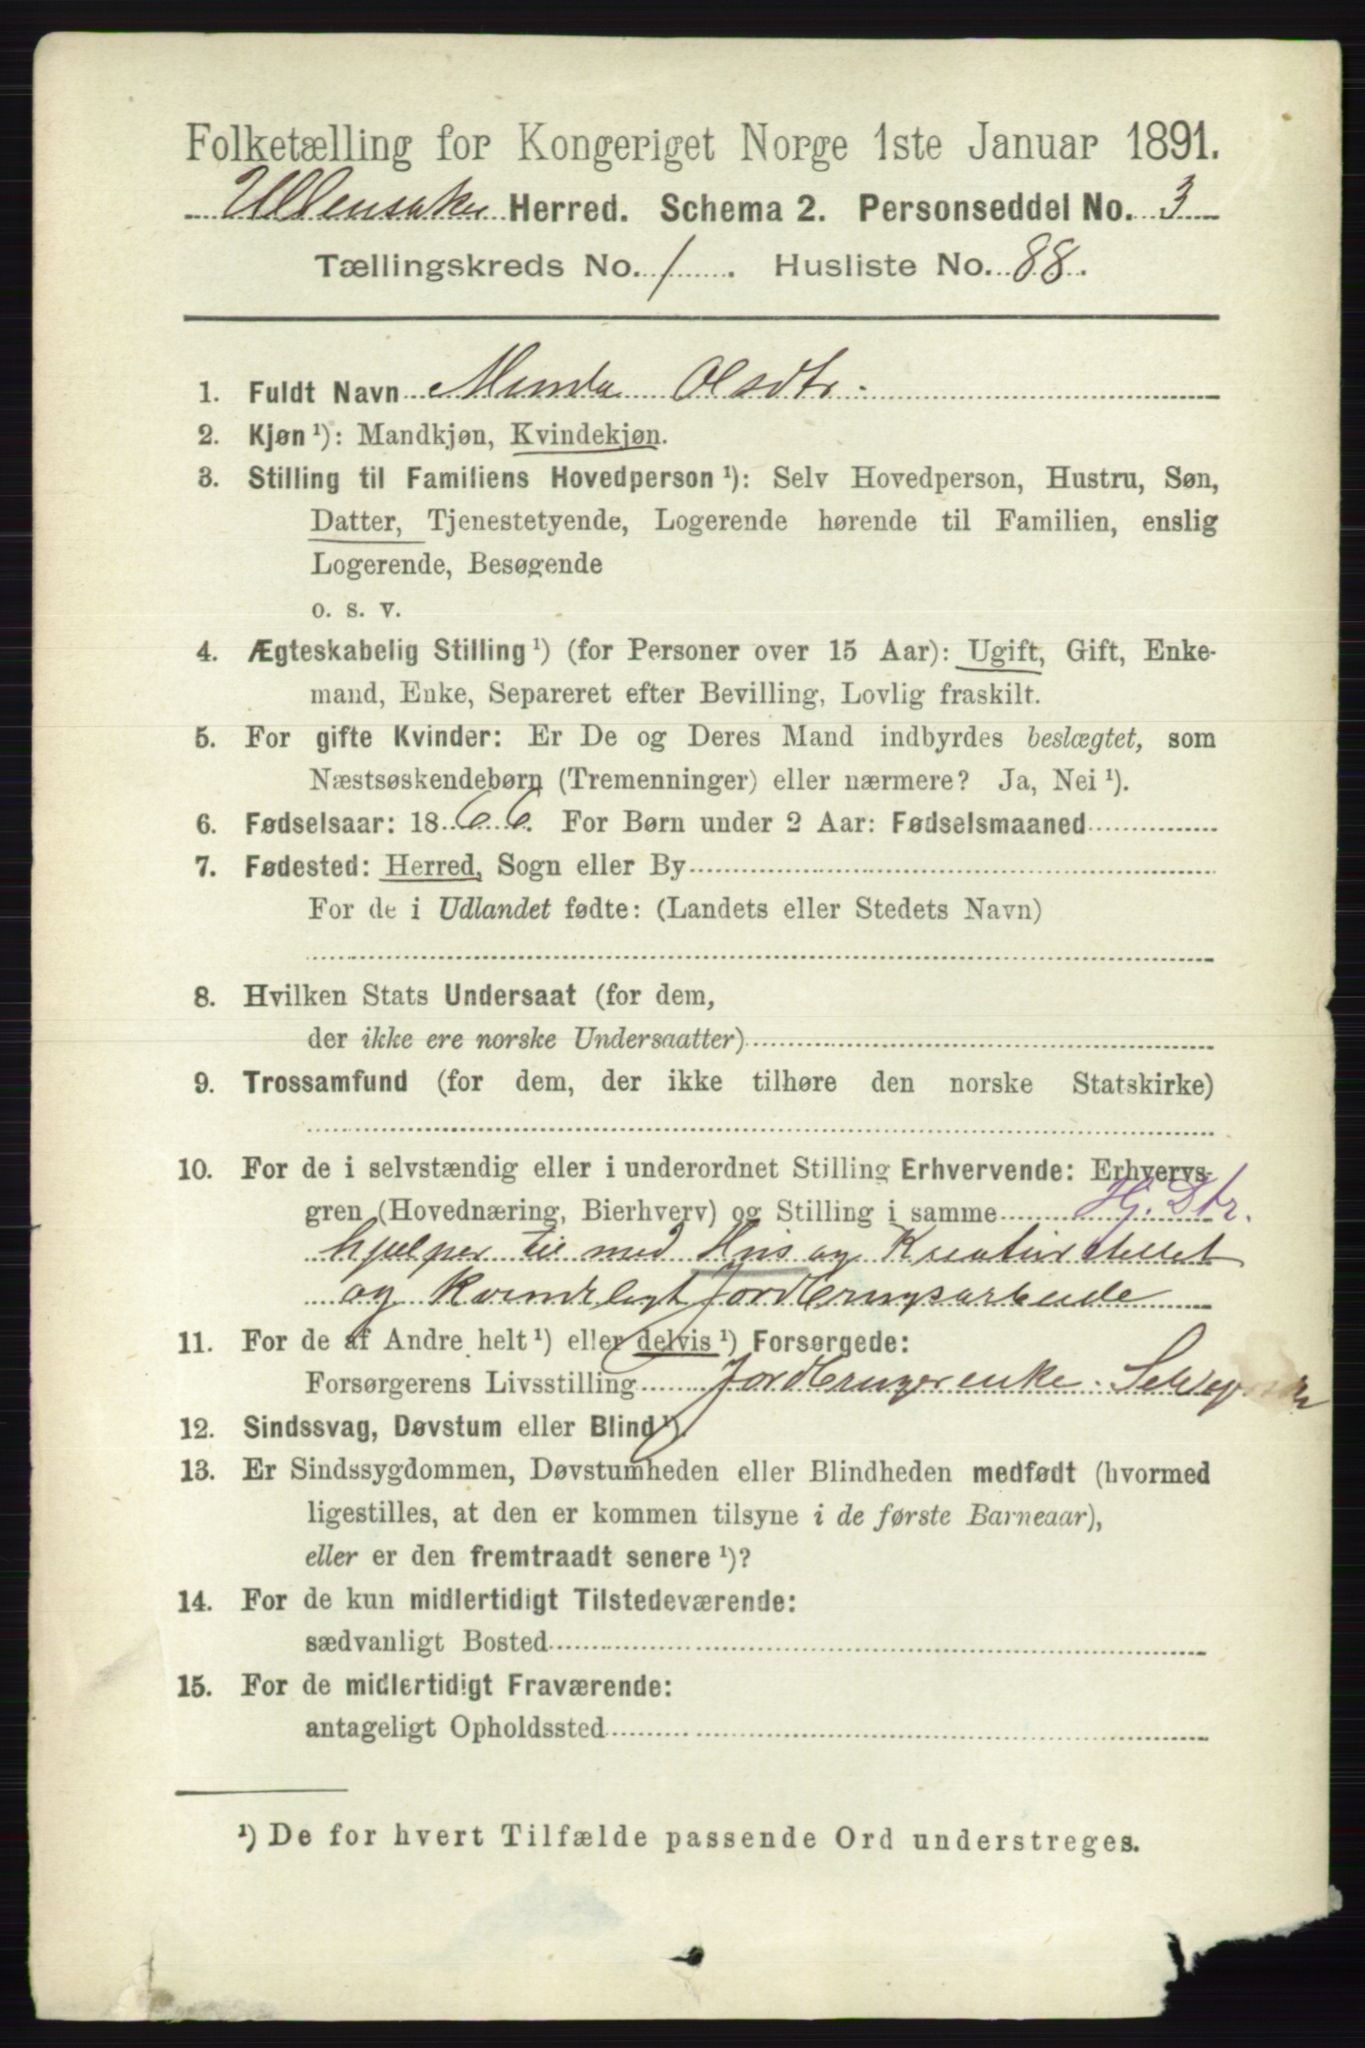 Folketælling for Kongeriget Norge 1ste Januar 1891.
Ullensaker Herred. Schema 2. Personseddel No. 3
Tællingskreds No. 1. Husliste No. 88.
1. Fuldt Navn Minda Olsdtr.
2. Kjøn ¹): Mandkjøn, Kvindekjøn.
3. Stilling til Familiens Hovedperson ¹): Selv Hovedperson, Hustru, Søn,
Datter, Tjenestetyende, Logerende hørende til Familien, enslig
Logerende, Besøgende
o. s. v.
4. Ægteskabelig Stilling ¹) (for Personer over 15 Aar): Ugift, Gift, Enke-
mand, Enke, Separeret efter Bevilling, Lovlig fraskilt.
5. For gifte Kvinder: Er De og Deres Mand indbyrdes beslægtet, som
Næstsøskendebørn (Tremenninger) eller nærmere? Ja, Nei ¹).
6. Fødselsaar: 1866. For Børn under 2 Aar: Fødselsmaaned
7. Fødested: Herred, Sogn eller By
For de i Udlandet fødte: (Landets eller Stedets Navn)
8. Hvilken Stats Undersaat (for dem,
der ikke ere norske Undersaatter)
9. Trossamfund (for dem, der ikke tilhøre den norske Statskirke)
10. For de i selvstændig eller i underordnet Stilling Erhvervende: Erhvervs-
gren (Hovednæring, Bierhverv) og Stilling i samme Hj. Dtr.
hjælper til med Hus og Kreaturstellet
og kvindeligt Jordbrugsarbeide
11. For de af Andre helt ¹) eller delvis ¹) Forsørgede:
Forsørgerens Livsstilling Jordbrugerenke. Selveiende
12. Sindssvag, Døvstum eller Blind ¹).
13. Er Sindssygdommen, Døvstumheden eller Blindheden medfødt (hvormed
ligestilles, at den er kommen tilsyne i de første Barneaar),
eller er den fremtraadt senere ¹)?
14. For de kun midlertidigt Tilstedeværende:
sædvanligt Bosted
15. For de midlertidigt Fraværende:
antageligt Opholdssted
¹) De for hvert Tilfælde passende Ord understreges.